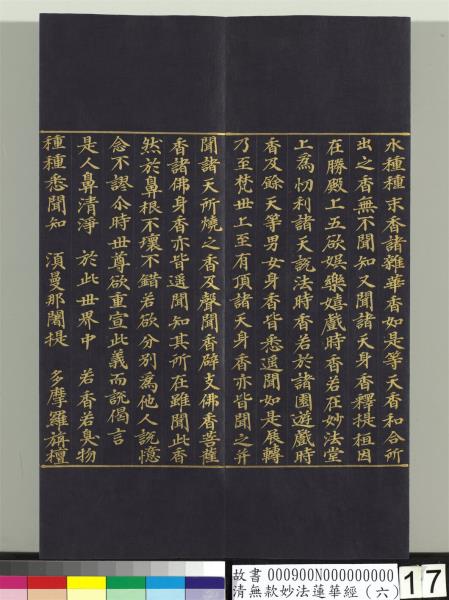 水種種末香諸雜華香如是等天香和合所
出之香無不聞知又聞諸天身香釋提桓因
在勝殿上五欲娛樂嬉戲時香若在妙法堂
上為忉利諸天說法時香若於諸園遊戲時
香及餘天等男女身香皆悉遥聞如是展轉
乃至梵世上至有頂諸天身香亦皆聞之并
聞諸天所燒之香及聲聞香辟支佛香菩薩
香諸佛身香亦皆遥聞知其所在雖聞此香
然於鼻根不壞不錯若欲分別為他人說憶
念不謬尒時世尊欲重宣此義而說偈言
是人鼻清淨 於此世界中 若香若臭物
種種悉聞知 須曼那闍提 多摩羅旃檀
故書 000900N000000000
清無款妙法蓮華經(六)
17